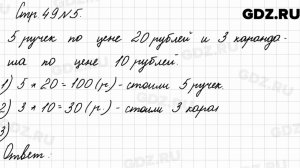 GDZ.RU
Стр 49 №5.
5 ручек по цене 20 рублей и 3 каранда-
ша по цене 10 рублей.
1) 5 * 20 = 100 (р.) - стоили 5 ручек
2) 3 * 10 = 30 (р.) - стоили 3 каран
3)
Ответ:
GDZ.RU